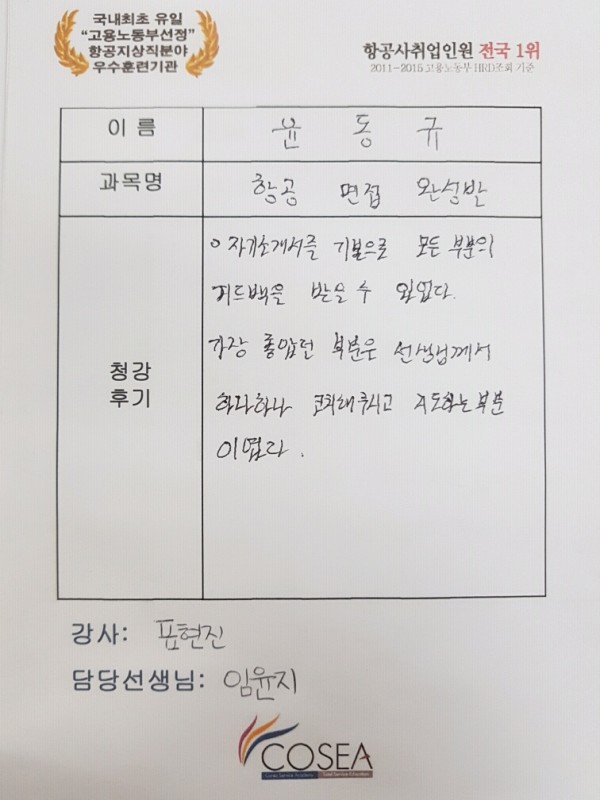 국내최초 유일
"고용노동부선정"
항공지상직분야
우수훈련기관
항공사취업인원 전국 1위
2011~2015 고용노동부 HRD조회 기준
이 름
윤 동 규
과목명
항공 면접 완성반
청강
후기
자기소개서를 기본으로 모든 부분의
피드백을 받을 수 있었다.
가장 좋았던 부분은 선생님께서
하나하나 코치해주시고 지도하는 부분
이였다.
강사: 표현진
담당선생님: 임윤지
COSEA